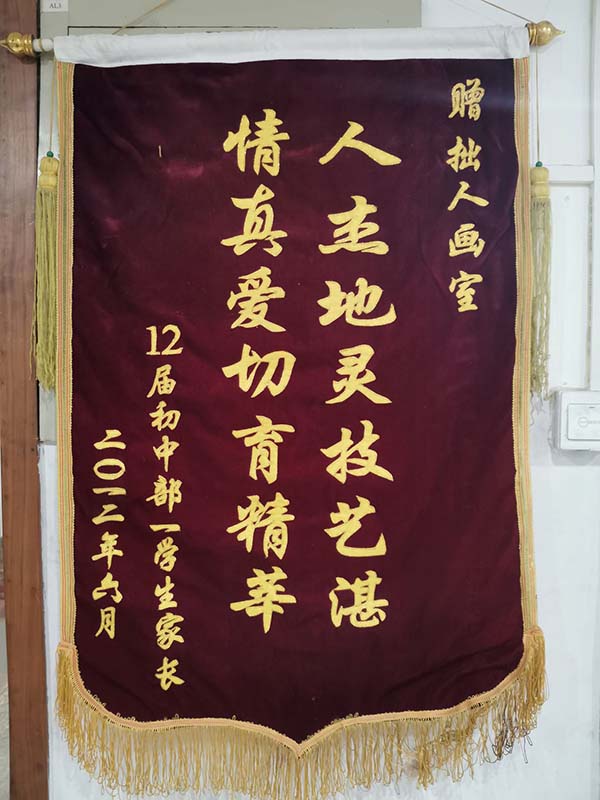 AL3
赠拙人画室
人杰地灵技艺湛
情真爱切育精莘
12届初中部一学生家长
二〇一二年六月